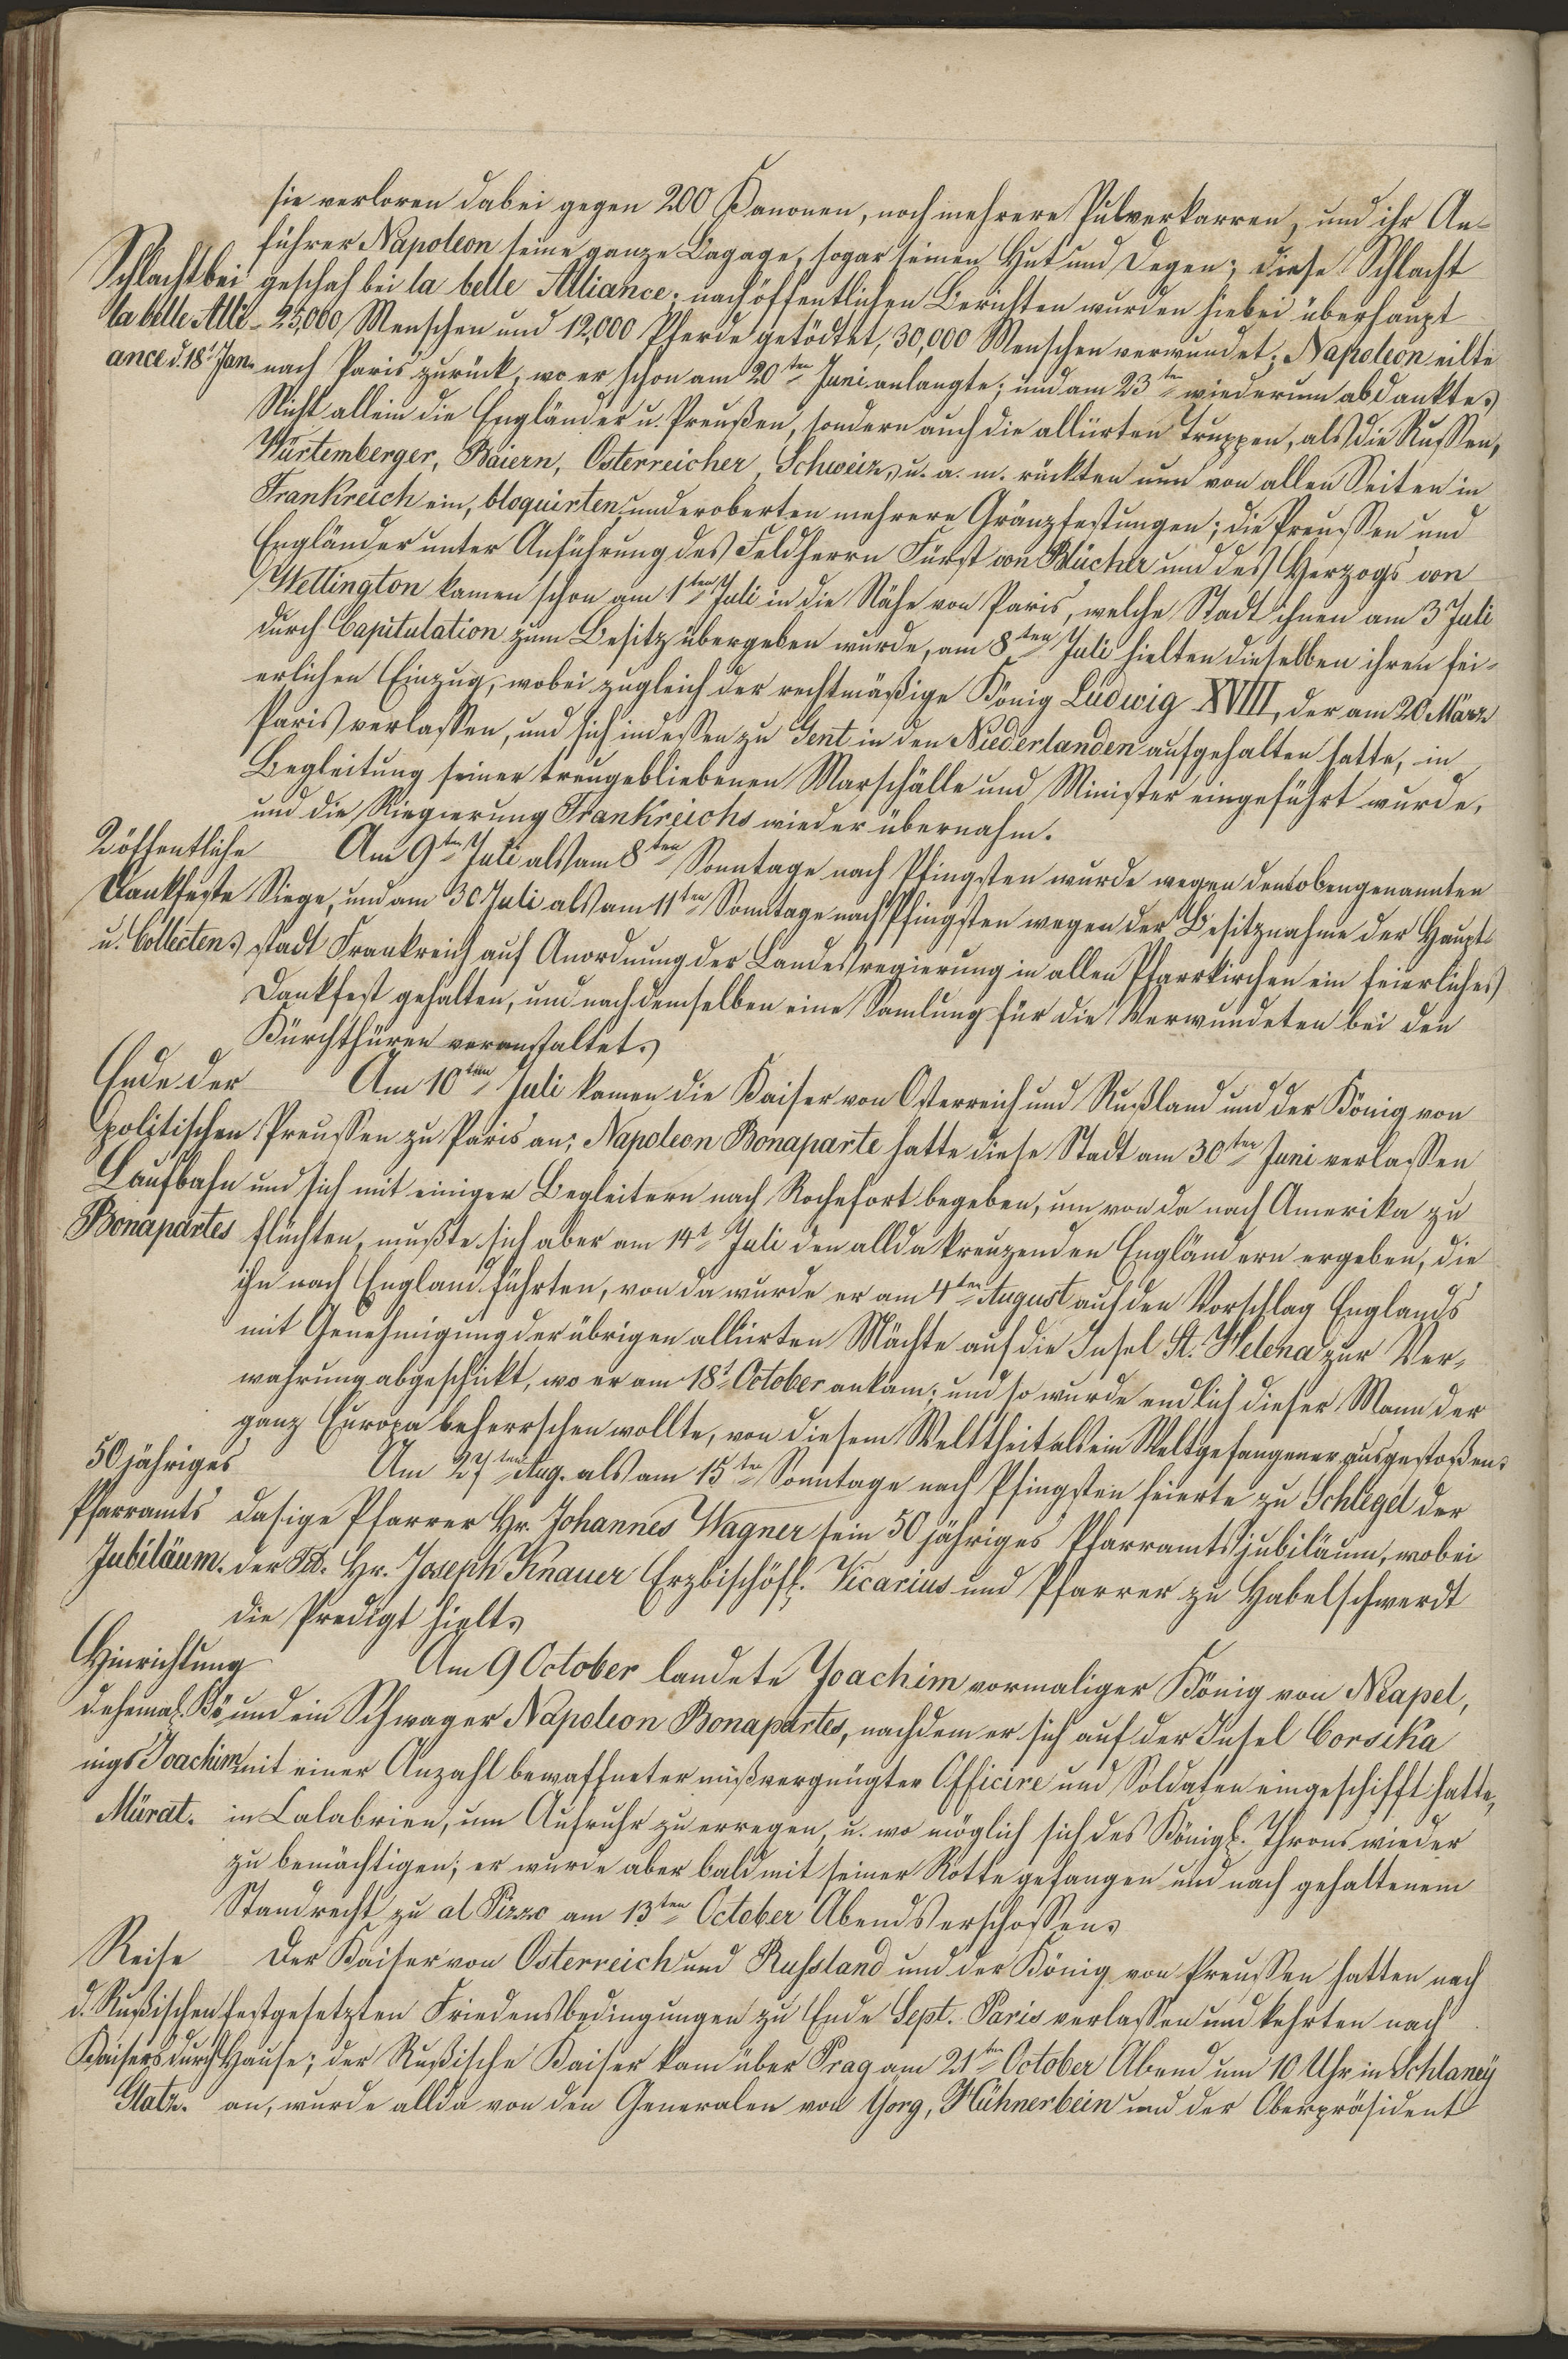 sie verloren dabei gegen 200 Kanonen, noch mehrere Pulverkarren, und ihr An-
führer Napoleon seine ganze Bagage, sogar seinen Hut und Degen; diese Schlacht
Schlacht bei
geschah bei la belle Alliance; nach öffentlichen Berichten wurden hiebei überhaupt
la belle Alli-
25,000 Menschen und 12,000 Pferde getödtet, 30,000 Menschen verwundet; Napoleon eilte
ance d. 18t Jan.
nach Paris zurück, wo er schon am 20ten Juni anlangte; und am 23ten wiederum abdankte.
Nicht allein die Engländer u. Preußen, sondern auch die alliirten Truppen, als die Russen,
Würtemberger, Baiern, Österreicher, Schweiz. u. a. m. rückten nun von allen Seiten in
Frankreich ein, bloquirten und eroberten mehrere Gränzfestungen; die Preussen und
Engländer unter Anführung des Feldherrn Fürst von Blücher und des Herzogs von
Wellington kamen schon am 1ten Juli in die Nähe von Paris, welche Stadt ihnen am 3 Juli
durch Capitulation zum Besitz übergeben wurde, am 8ten Juli hielten dieselben ihren fei-
erlichen Einzug, wobei zugleich der rechtmäßige König Ludwig XVIII, der am 20 März
Paris verlassen, und sich indessen zu Gent in den Niederlanden aufgehalten hatte, in
Begleitung seiner treugebliebenen Marschälle und Minister eingeführt wurde,
und die Riegierung Frankreichs wieder übernahm.
2 öffentliche
Am 9ten Juli als am 8ten Sonntage nach Pfingsten wurde wegen dem obengenannten
Dankfeste
Siege, und am 30 Juli als am 11ten Sonntage nach Pfingsten wegen der Besitznahme der Haupt-
u. Collecten.
stadt Frankreich auf Anordnung der Landesregierung in allen Pfarrkirchen ein feierliches
Dankfest gehalten, und nach demselben eine Samlung für die Verwundeten bei den
Kürchthüren veranstaltet.
Ende der
Am 10ten Juli kamen die Kaiser von Österreich und Rußland und der König von
politischen
Preussen zu Paris an; Napoleon Bonaparte hatte diese Stadt am 30ten Juni verlassen
Laufbahn
und sich mit einigen Begleitern nach Rochefort begeben, um von da nach Amerika zu
Bonapartes
flüchten, mußte sich aber am 14t Juli den allda kreuzenden Engländern ergeben, die
ihn nach England führten, von da wurde er am 4ten August auf den Vorschlag Englands
mit Genehmigung der übrigen alliirten Mächte auf die Insel St. Helena zur Ver-
wahrung abgeschickt, wo er am 18t October ankam; und so wurde endlich dieser Mann der
ganz Europa beherrschen wollte, von diesem Welttheil als ein Weltgefangener ausgestoßen.
50 jähriges
Am 27ten Aug. als am 15ten Sonntage nach Pfingsten feierte zu Schlegel der
Pfarramts
dasige Pfarrer Hr. Johannes Wagner sein 50 jähriges Pfarramtsjubiläum, wobei
Jubiläum.
der Hr. Joseph Knauer Erzbischöfl. Vicarius und Pfarrer zu Habelschwerdt
die Predigt hielt.
Hinrichtung
Am 9 October landete Joachim vormaliger König von Neapel,
d. ehemal. Kö-
und ein Schwager Napoleon Bonapartes, nachdem er sich auf der Insel Corsika
nigs Joachim
mit einer Anzahl bewaffneter mißvergnügter Officire und Soldaten eingeschifft hatte,
Mürat.
in Calabrien, um Aufruhr zu erregen, u. wo möglich sich des Königl. Throns wieder
zu bemächtigen; er wurde aber bald mit seiner Rotte gefangen und nach gehaltenem
Standrecht zu al Pizzo am 13ten October Abends erschossen.
Reise
Der Kaiser von Österreich und Russland und der König von Preussen hatten nach
d. Rußischen
festgesetzten Friedensbedingungen zu Ende Sept. Paris verlassen und kehrten nach
Kaisers durch
Hause; der Rußische Kaiser kam über Prag am 21ten October Abend um 10 Uhr in Schlaney
Glatz.
an, wurde allda von den Generalen von Yorg, Hühnerbein und der Oberpräsident